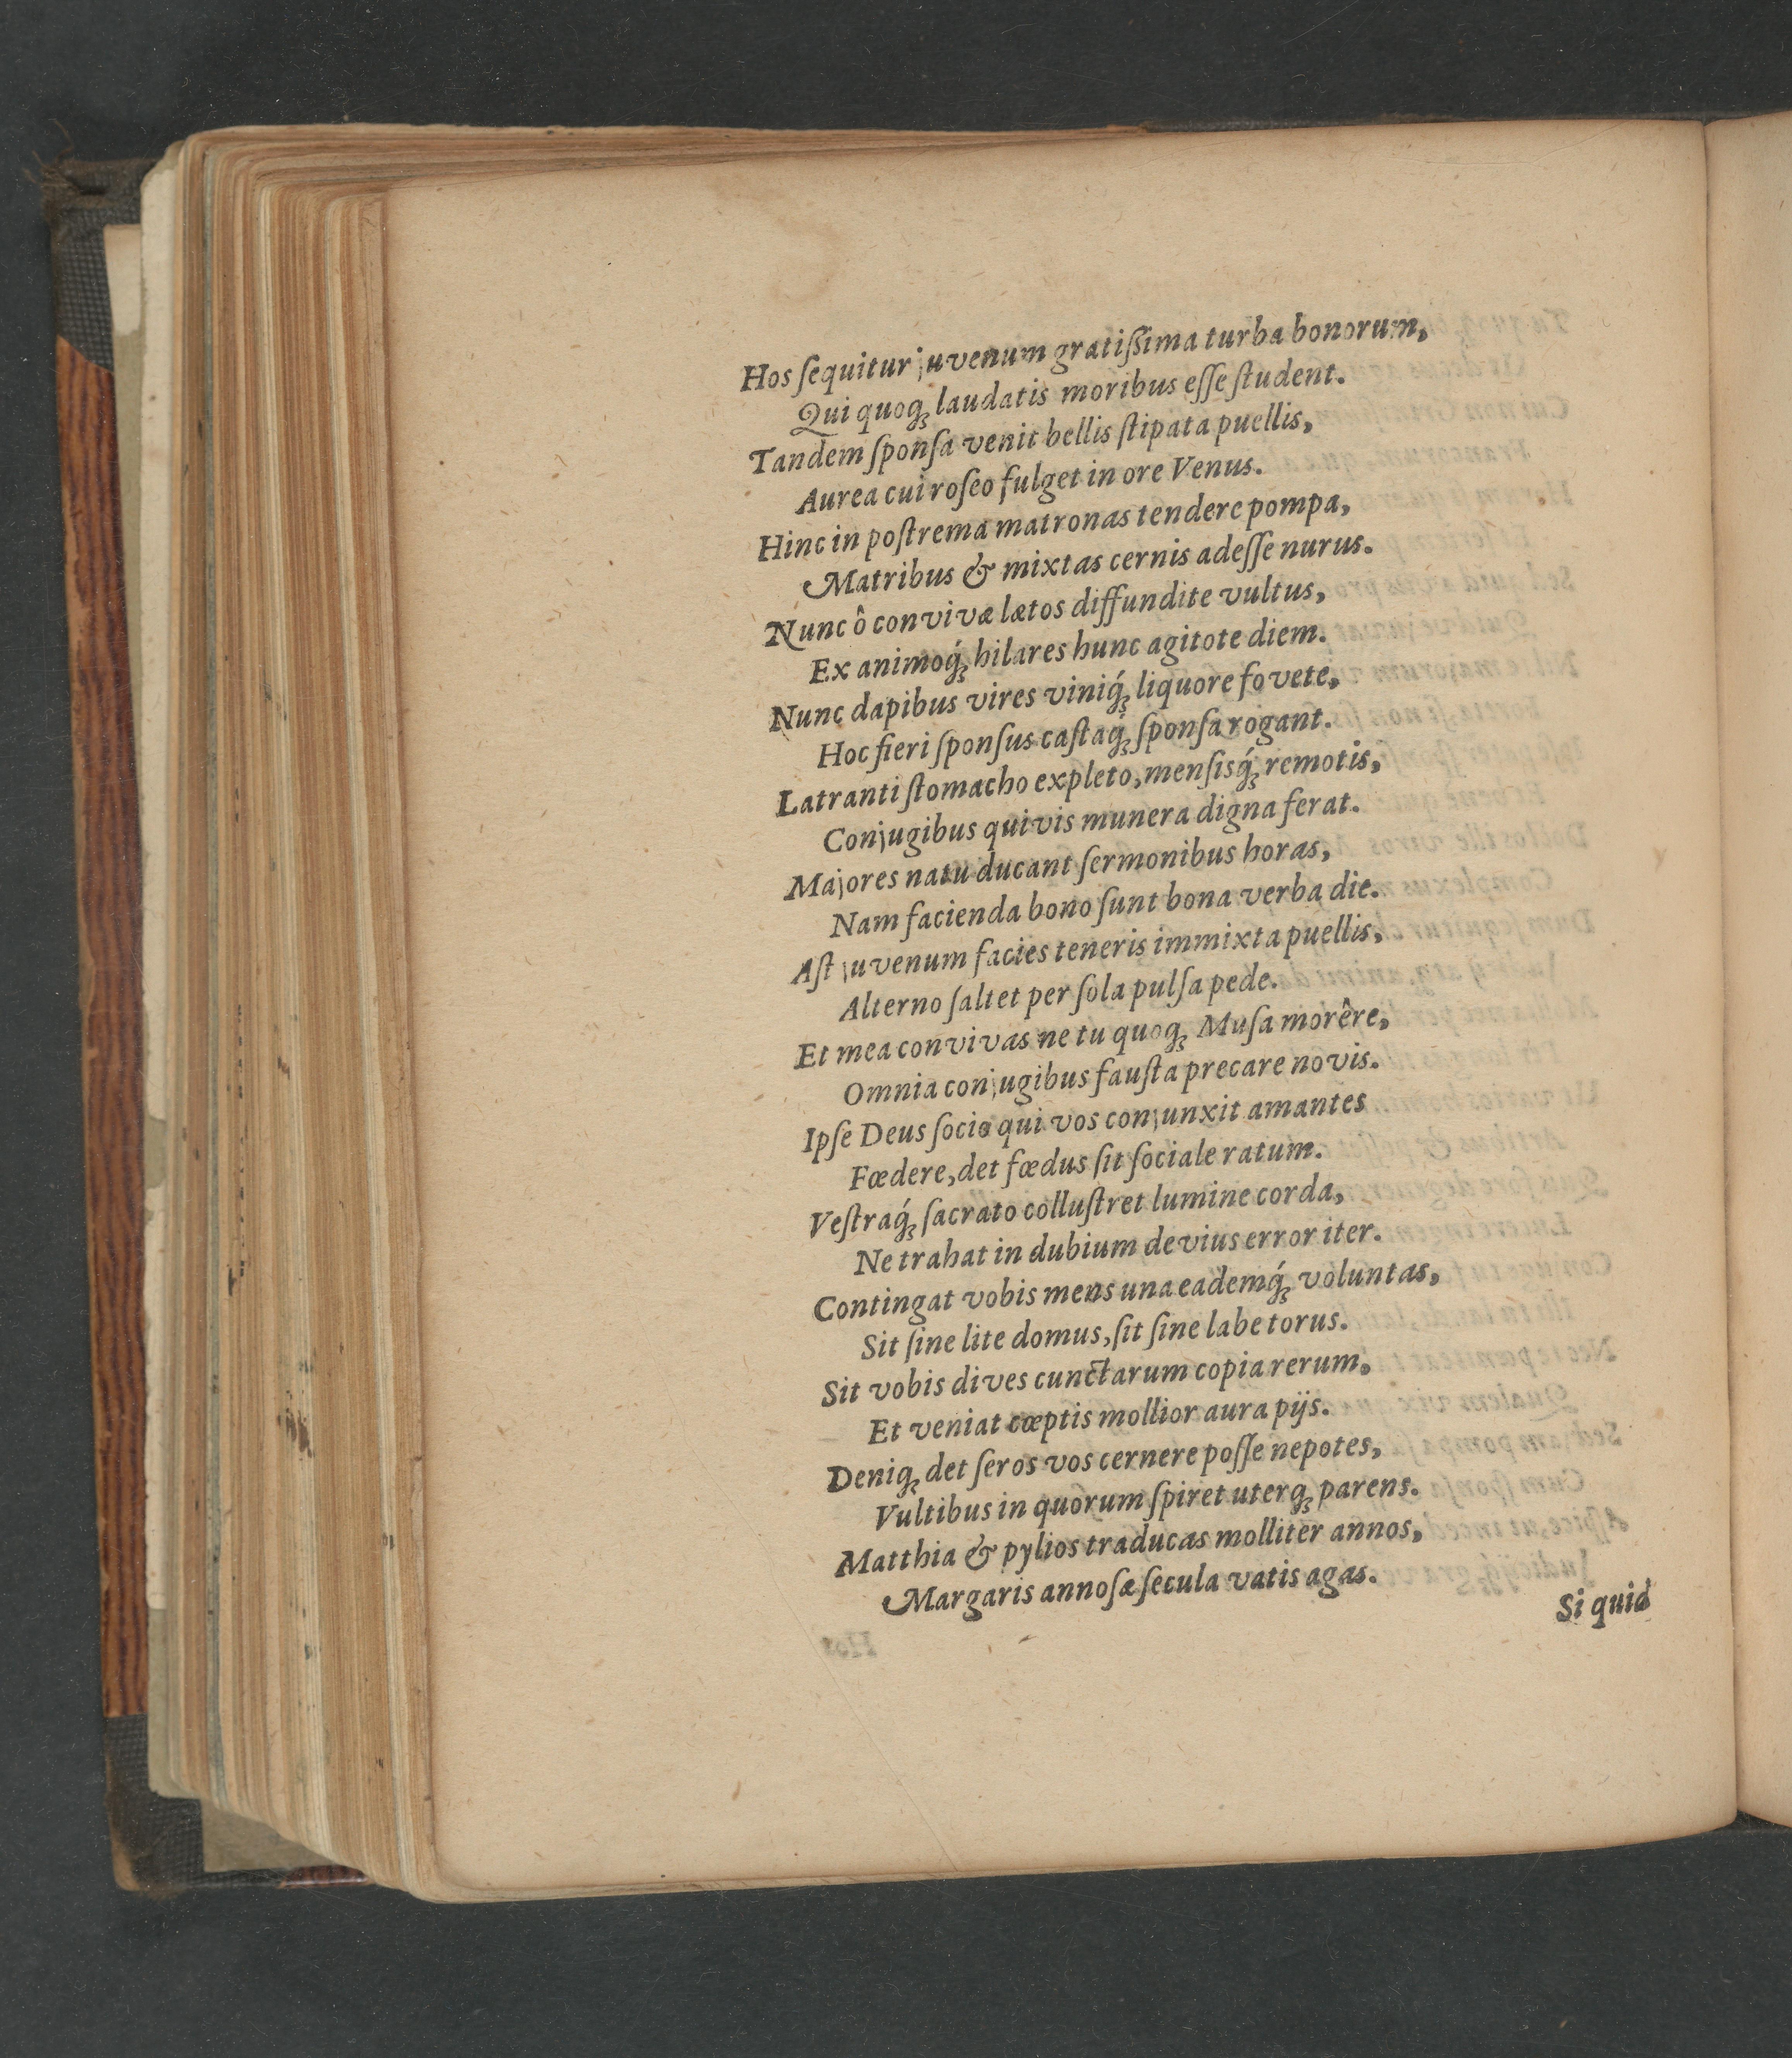 Hos ſequitur juvenum gratiſsima turba bonorum,
Qui quoq́; laudatis moribus eſſe ſtudent.
Tandem ſponſa venit bellis ſtipata puellis,
Aurea cui roſeo fulget in ore Venus.
Hinc in poſtrema matronas tendere pompa,
Matribus & mixtas cernis adeſſe nurus.
Nunc ô convivæ lætos diffundite vultus,
Ex animoq́; hilares hunc agitote diem.
Nunc dapibus vires viniq́; liquore fovete,
Hoc fieri ſponſus caſtaq́; ſponſa rogant.
Latranti ſtomacho expleto, menſisq́; remotis,
Conjugibus quivis munera digna ferat.
Majores natu ducant ſermonibus horas,
Nam facienda bono ſunt bona verba die.
Aſt juvenum facies teneris immixta puellis,
Alterno ſaltet per ſola pulſa pede.
Et mea convivas ne tu quoq; Muſa morêre,
Omnia conjugibus fauſta precare novis.
Ipſe Deus socio qui vos conjunxit amantes
Fœdere, det fœdus ſit ſociale ratum.
Veſtraq́; ſacrato colluſtret lumine corda,
Ne trahat in dubium devius error iter.
Contingat vobis mens una eademq́; voluntas,
Sit ſine lite domus, ſit ſine labe torus.
Sit vobis dives cunctarum copia rerum,
Et veniat cœptis mollior aura pijs.
Deniq; det ſeros vos cernere poſſe nepotes,
Vultibus in quorum ſpiret uterq; parens.
Matthia & pylios traducas molliter annos,
Margaris annoſæ ſecula vatis agas.
Si quid